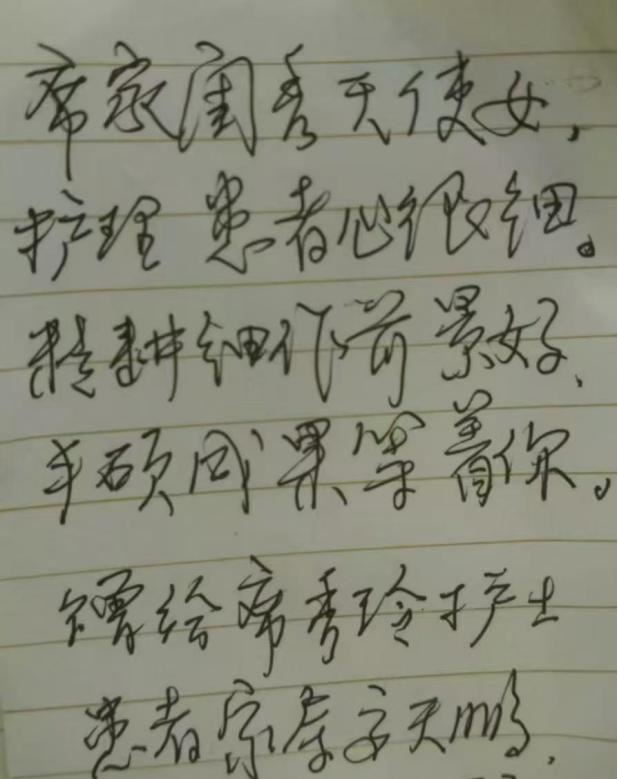 席家闺秀天使女,
护理患者心很细。
精耕细作前景好,
丰硕成果等着你。
赠给席秀玲护士
患者家李天鹏.